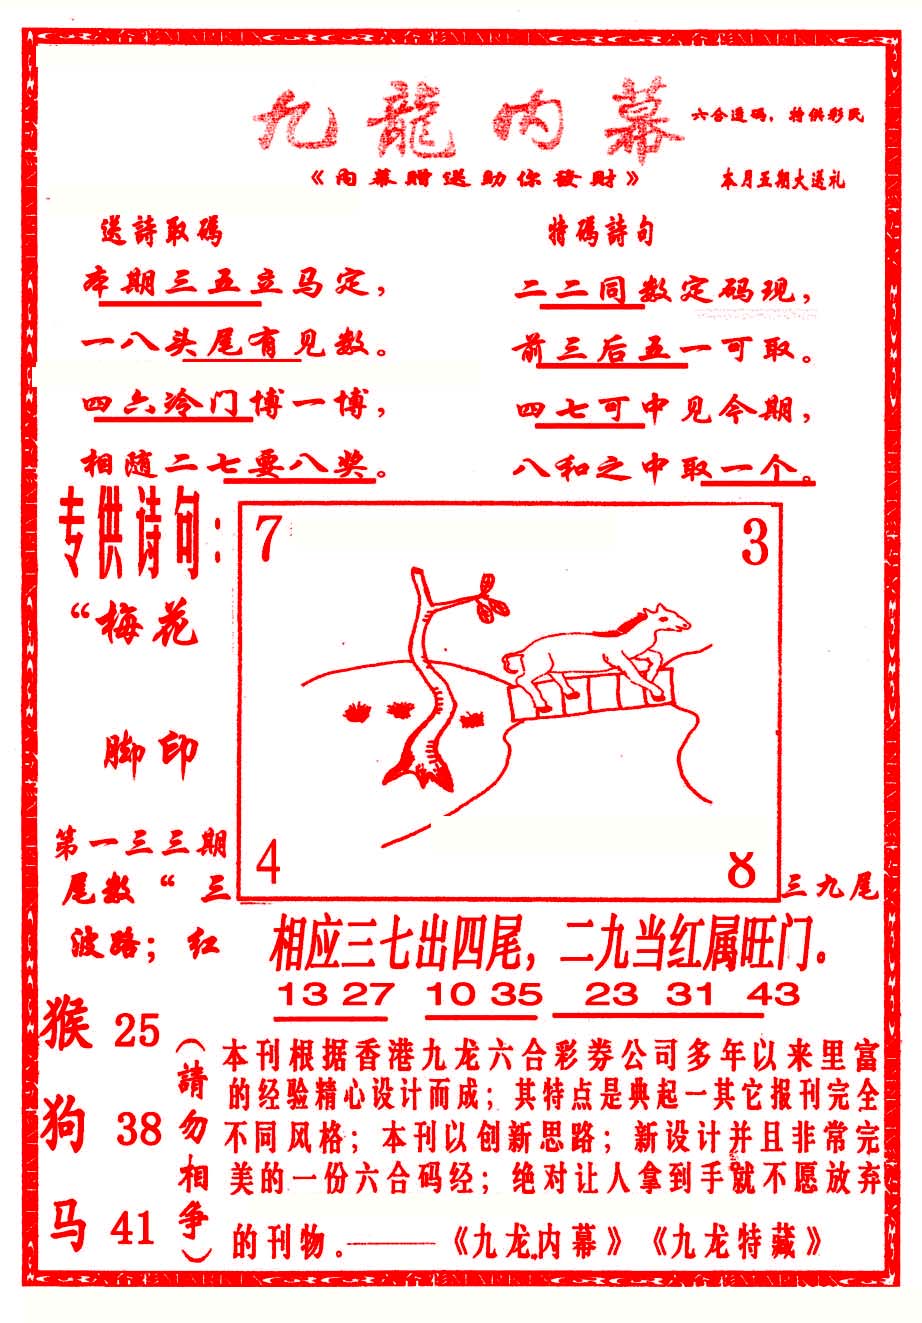 九龍内幕
六合透码，特供彩民
《内幕赠送助你發財》
本月五期大送礼
送詩取碼
本期三五立马定，
一八头尾有见数。
四六冷门博一博，
相随二七要八奖。
特碼詩句
二二同数定码现，
前三后五一可取。
四七可中见今期，
八和之中取一个。
专供诗句：
“梅花
脚印
第一三三期
尾数“三
波路；红
7
3
4
8
三九尾
相应三七出四尾，二九当红属旺门。
13 27 10 35 23 31 43
猴 25
狗 38
马 41
（請勿相争）
本刊根据香港九龙六合彩券公司多年以来里富
的经验精心设计而成；其特点是典起一其它报刊完全
不同风格；本刊以创新思路；新设计并且非常完
美的一份六合码经；绝对让人拿到手就不愿放弃
的刊物。———《九龙内幕》《九龙特藏》